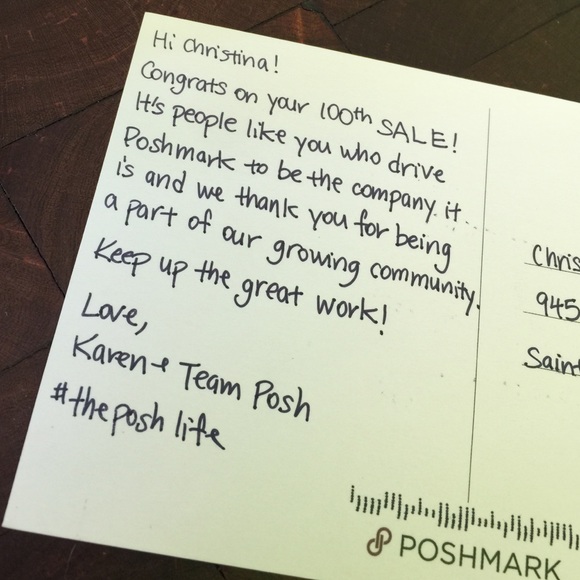 Hi Christina!
Congrats on your 100th SALE!
It's people like you who drive
Poshmark to be the company it
is and we thank you for being
a part of our growing community.
Keep up the great work!
Love,
Karen + Team Posh
#theposh life
Chris
945
Saint
POSHMARK